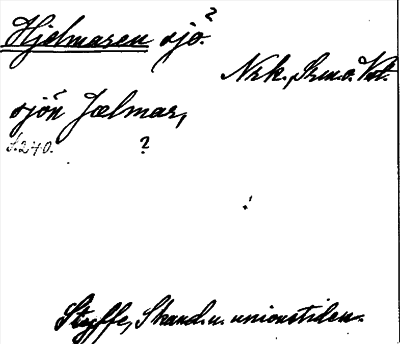 Hjelmaren sjö.?
Nrk., Srm. o. Vst.
sjön Jælmar,
S. 240. ?
Styffe, Skand. u. unionstiden.